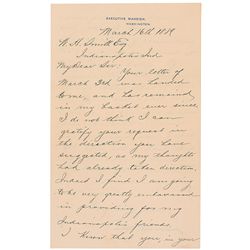 EXECUTIVE MANSION
WASHINGTON
March 16th 1889
W. H. Smith Esq
Indianapolis Ind
My Dear Sir: Your letter of
March 3rd was handed
to me, and has remained
in my basket ever since.
I do not think I can
gratify your request in
the direction you have
suggested, as my thoughts
had already taken direction
Indeed I find I am going
to be very greatly embarrassed
in providing for my
Indianapolis friends.
I know that you, in your